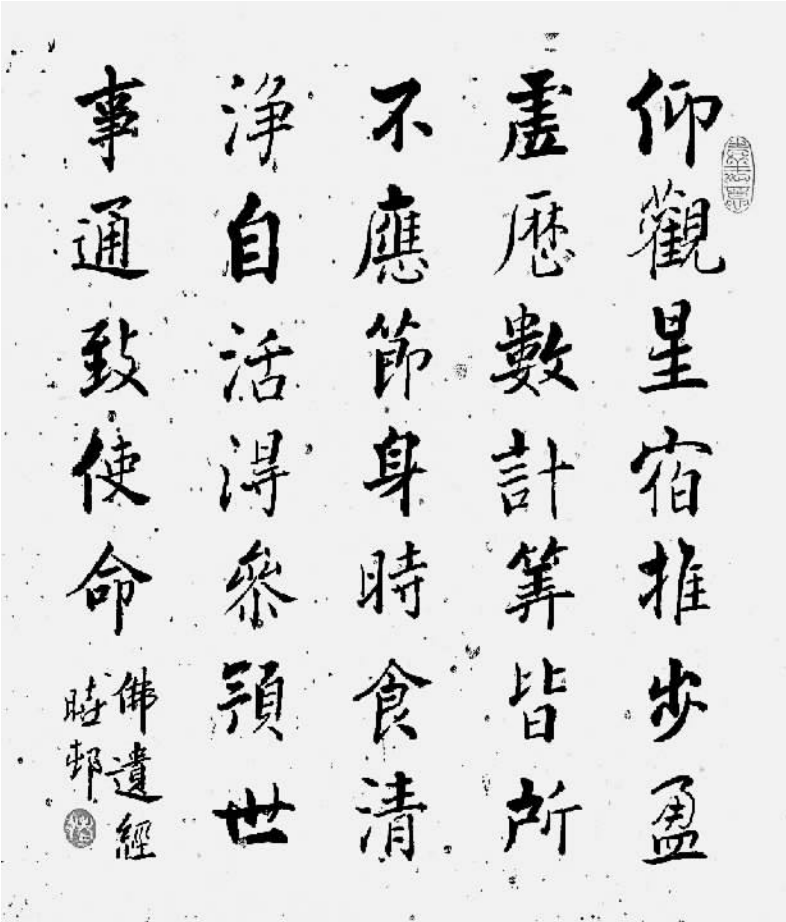 仰觀星宿推步盈
虛歷數計筭皆所
不應節身時食清
淨自活得參預世
事通致使命
佛遺經
時邨